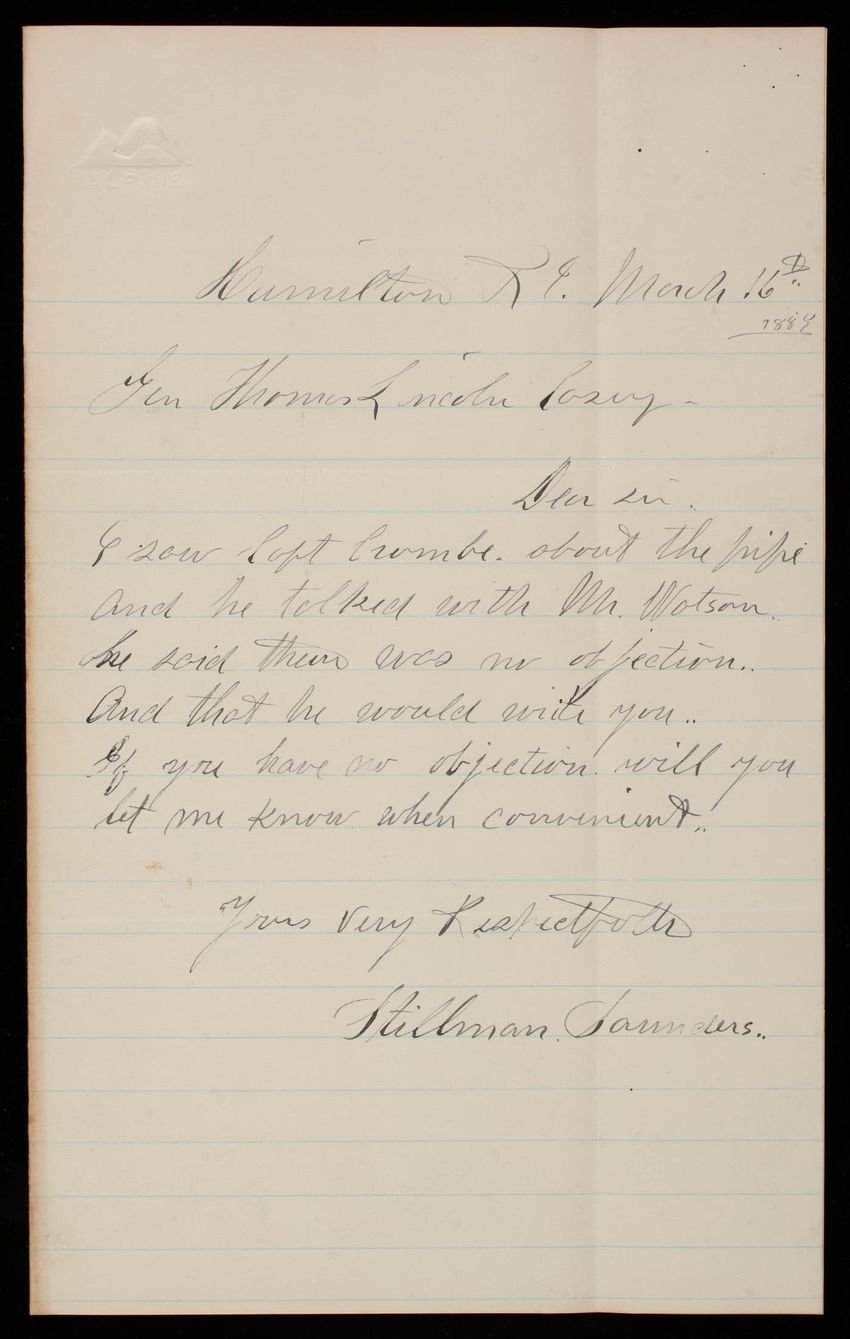 ALPINE
Hamilton R I. March 16th
1889
Gen Thomas Lincoln Casey -
Dear sir.
I saw Capt Crombe. about the pipe
And he talked with Mr. Watson.
he said there was no objection..
And that he would write you..
If you have no objection. will you
let me know when convenient..
Yours Very Respectfully
Stillman. Saunders..